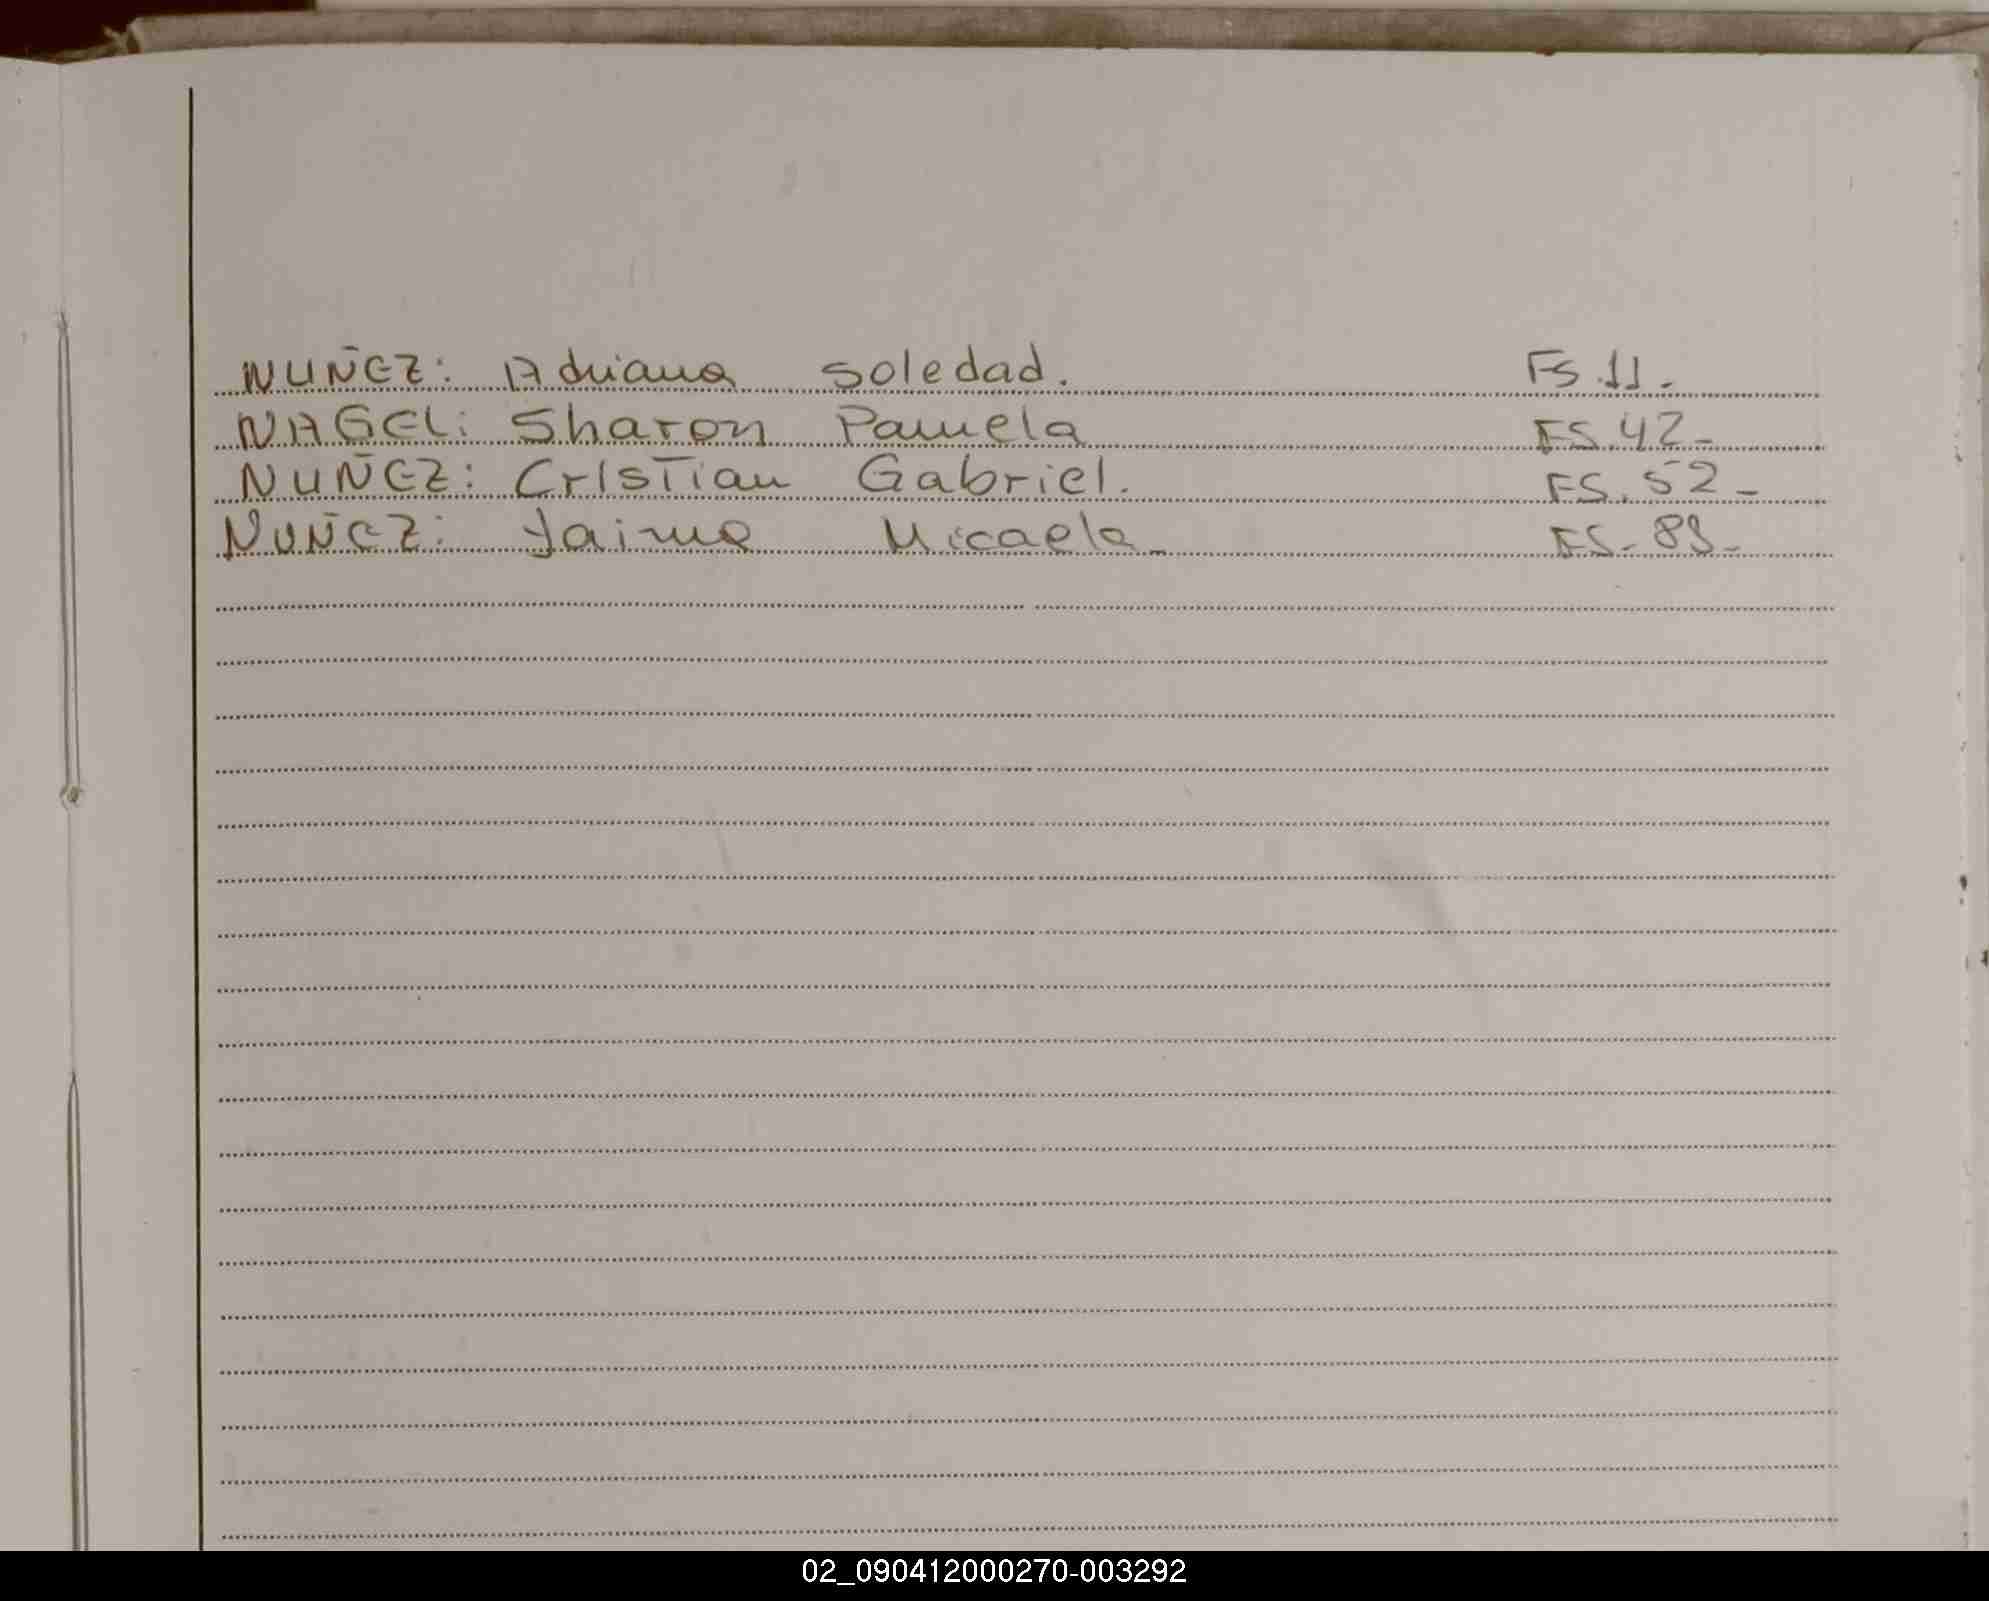 NUÑEZ: Adriana Soledad. FS.11.-
NAGEL: Sharon Pamela FS.42-
NUÑEZ: Cristian Gabriel. FS.52-
NUÑEZ: Micaela- FS-89-
02_090412000270-003292